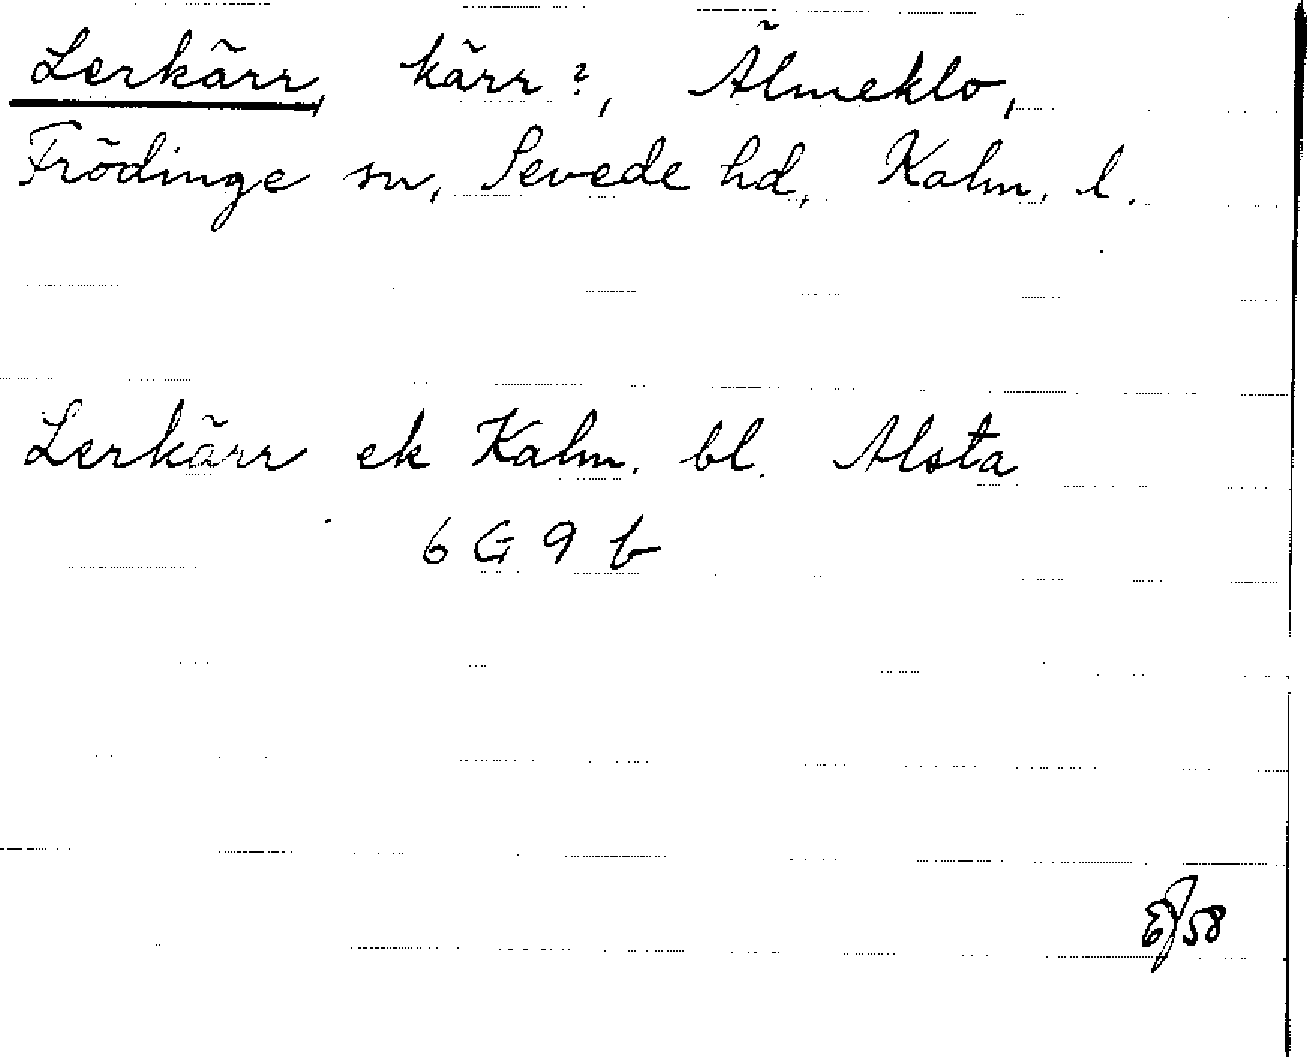 Lerkärr, kärr?, Älmeklo,
Frödinge sn, Sevede hd, Kalm. l.
Lerkärr ek Kalm. bl. Alsta
6 G 9 b
58